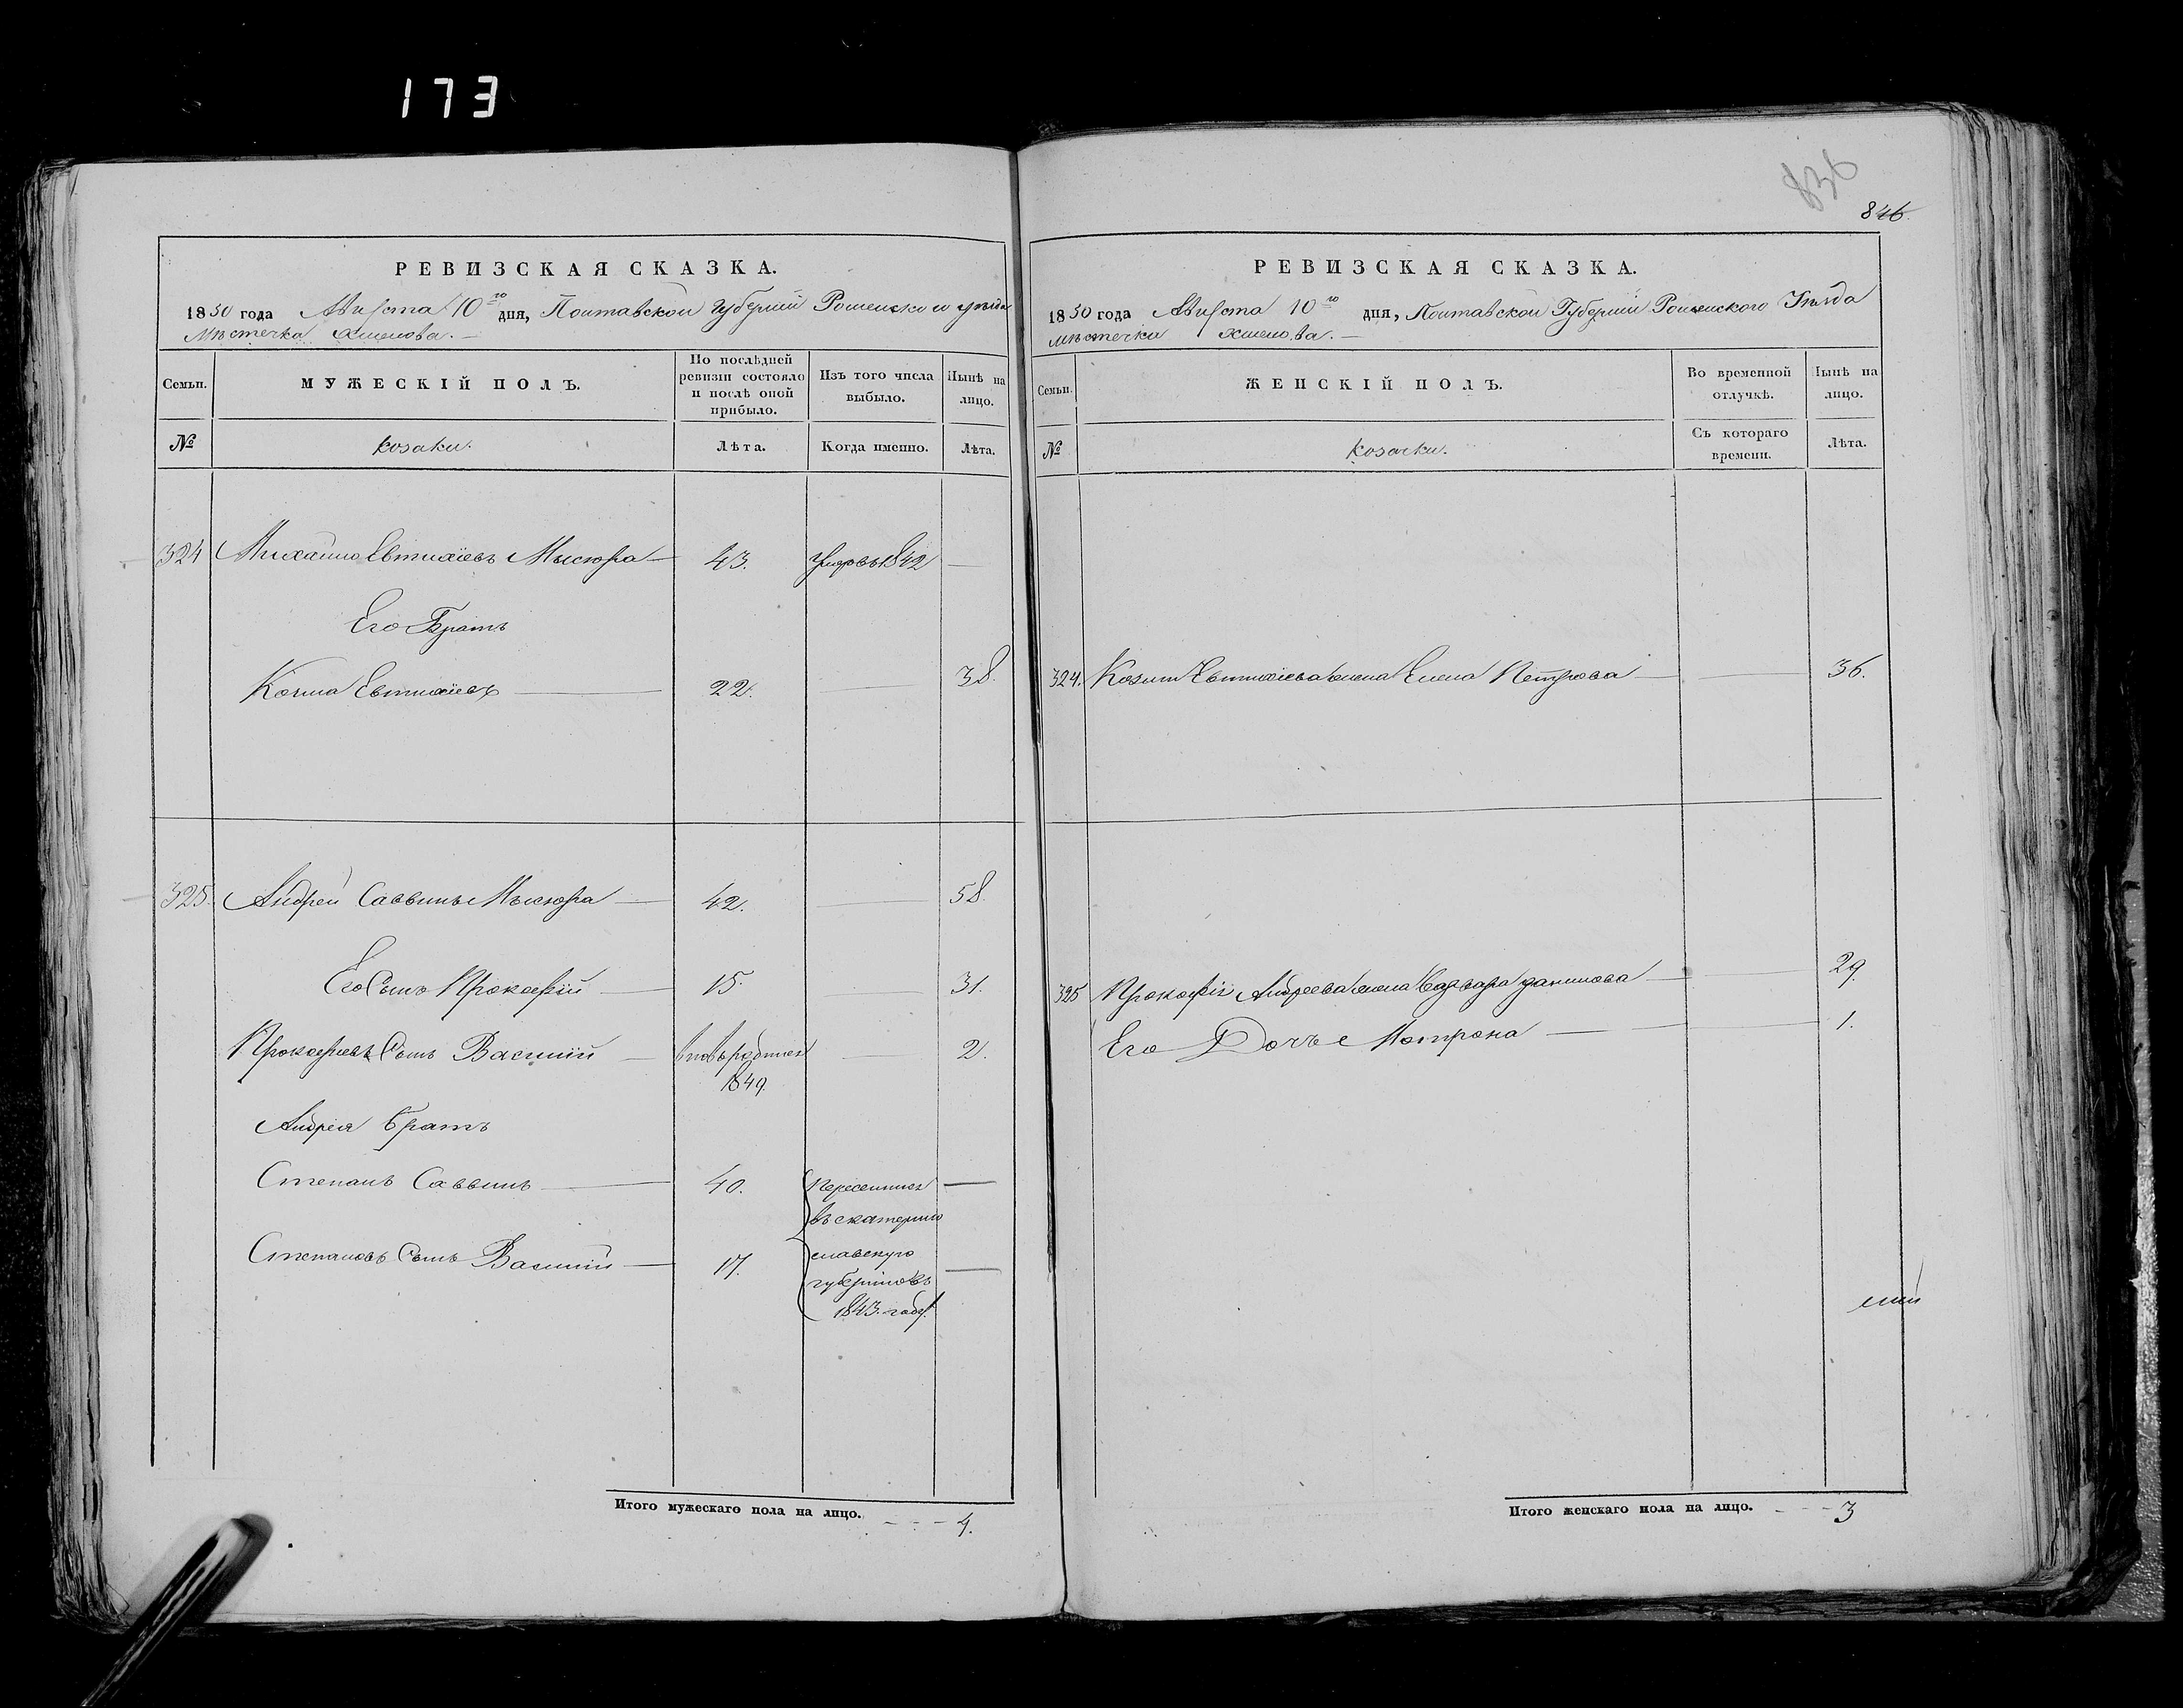 173
836
846
РЕВИЗСКАЯ СКАЗКА.
1850 года Августа 10го дня, Полтавской Губернии Роменского уѣзда
Мѣстечка Хмелова.
Семьи.
МУЖЕСКІЙ ПОЛЪ.
По послѣдней ревизіи состояло и послѣ оной прибыло.
Изъ того числа выбыло.
Нынѣ на лицо.
№
козаки.
Лѣта.
Когда именно.
Лѣта.
324 Михайло Евтихіевъ Мысюра 43. умеръ въ 1842
Его Братъ
Козма Евтихіевъ 22. 38.
325. Андрей Саввинъ Мысюра 42. 58.
Его Сынъ Прокофій 15. 31.
Прокофіевъ Сынъ Василій вновьродился 2.
1849.
Андрея братъ
Степанъ Саввинъ 40. Переселился
въ екатерино
Степановъ Сынъ Василій 17. славскую
губернію въ
1843. году
Итого мужескаго пола на лицо. 4.
РЕВИЗСКАЯ СКАЗКА.
1850 года Августа 10го дня, Полтавской Губерніи Роменского Уѣзда
мѣстечка Хмелова.
Семьи.
ЖЕНСКІЙ ПОЛЪ.
Во временной отлучкѣ.
Нынѣ на лицо.
№
козачки.
Съ котораго времени.
Лѣта.
324. Козмы Евтихіева жена Елена Петрова 36.
325 Прокофія Андреева жена Варвара данилова 29.
Его Дочь Мотрона 1.
Итого женскаго пола на лицо. 3